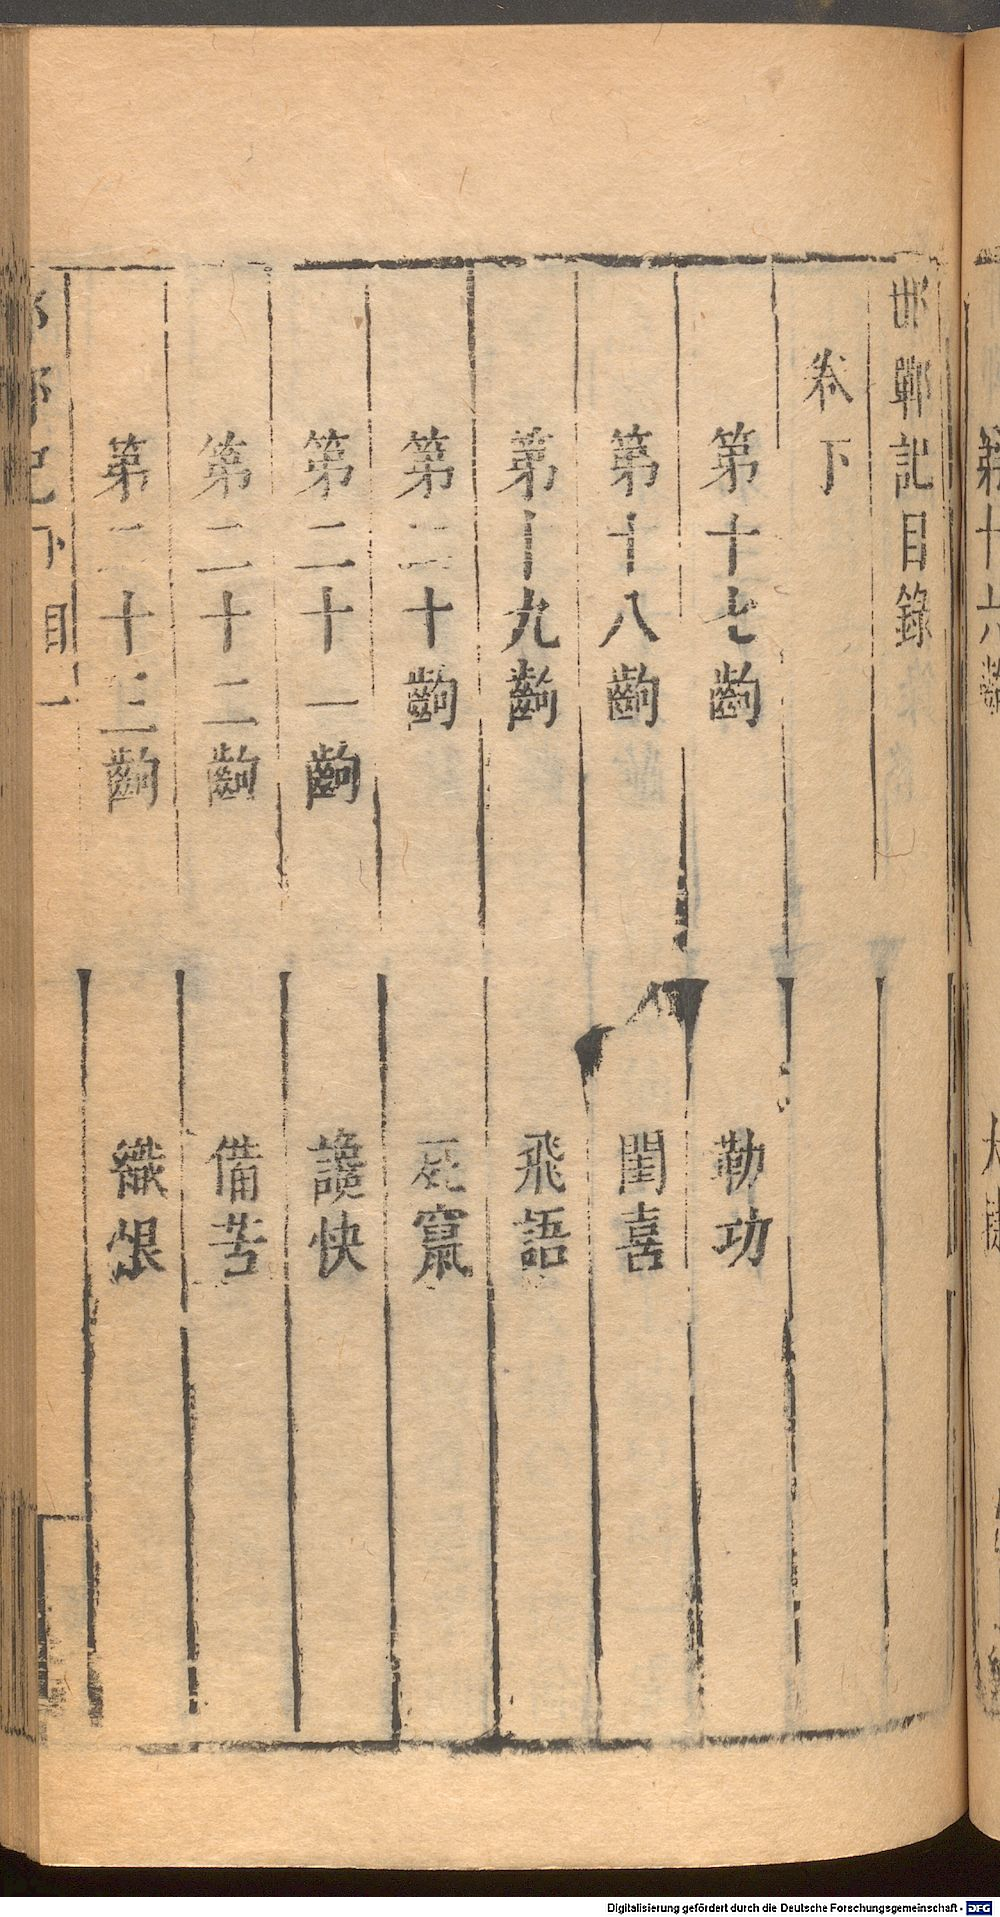 邯鄲記目錄
卷下
第十七齣 勒功
第十八齣 閨喜
第十九齣 飛語
第二十齣 死竄
第二十一齣 讒快
第二十二齣 備苦
第二十三齣 織恨
記下目一
第十六齣
Digitalisierung gefördert durch die Deutsche Forschungsgemeinschaft - DFG